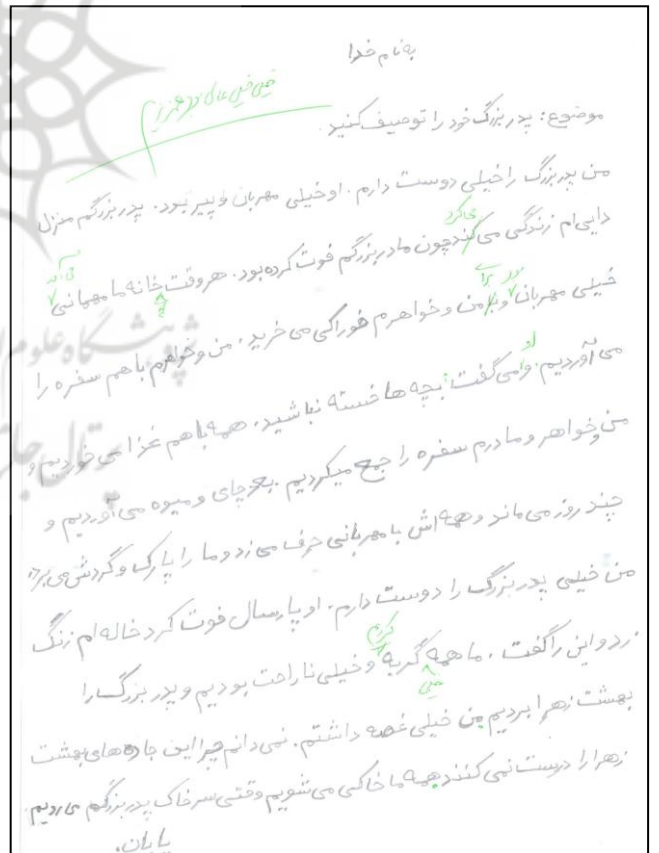 به نام خدا
خیلی خیلی عالی بود عزیزم
موضوع: پدر بزرگ خود را توصیف کنید.
من پدر بزرگ را خیلی دوست دارم. او خیلی مهربان و پیر بود. پدر بزرگم منزل
می‌کرد
دایی ام زندگی می کند چون مادر بزرگم فوت کرده بود. هر وقت خانه ما مهمانی می‌آمد
بود برای
خیلی مهربان و برا من و خواهرم خوراکی می خرید، من و خواهرم با هم سفره را
او
می آوردیم. و می گفت: بچه ها خسته نباشید، همه با هم غذا می خوردیم و
من و خواهر و مادرم سفره را جمع میکردیم. بعد چای و میوه می آوردیم و
چند روز می ماند و همه اش با مهربانی حرف می زد و ما را پارک و گردش می برد
من خیلی پدر بزرگ را دوست دارم. او پارسال فوت کرد خاله ام زنگ
کردیم
زد و این را گفت، ما همه گریه و خیلی ناراحت بودیم و پدر بزرگ را
خیلی
بهشت زهرا بردیم من خیلی غصه داشتم. نمی دانم چرا این جاده های بهشت
زهرا را درست نمی کنند همه ما خاکی می شویم وقتی سر خاک پدر بزرگم می رویم.
پایان.